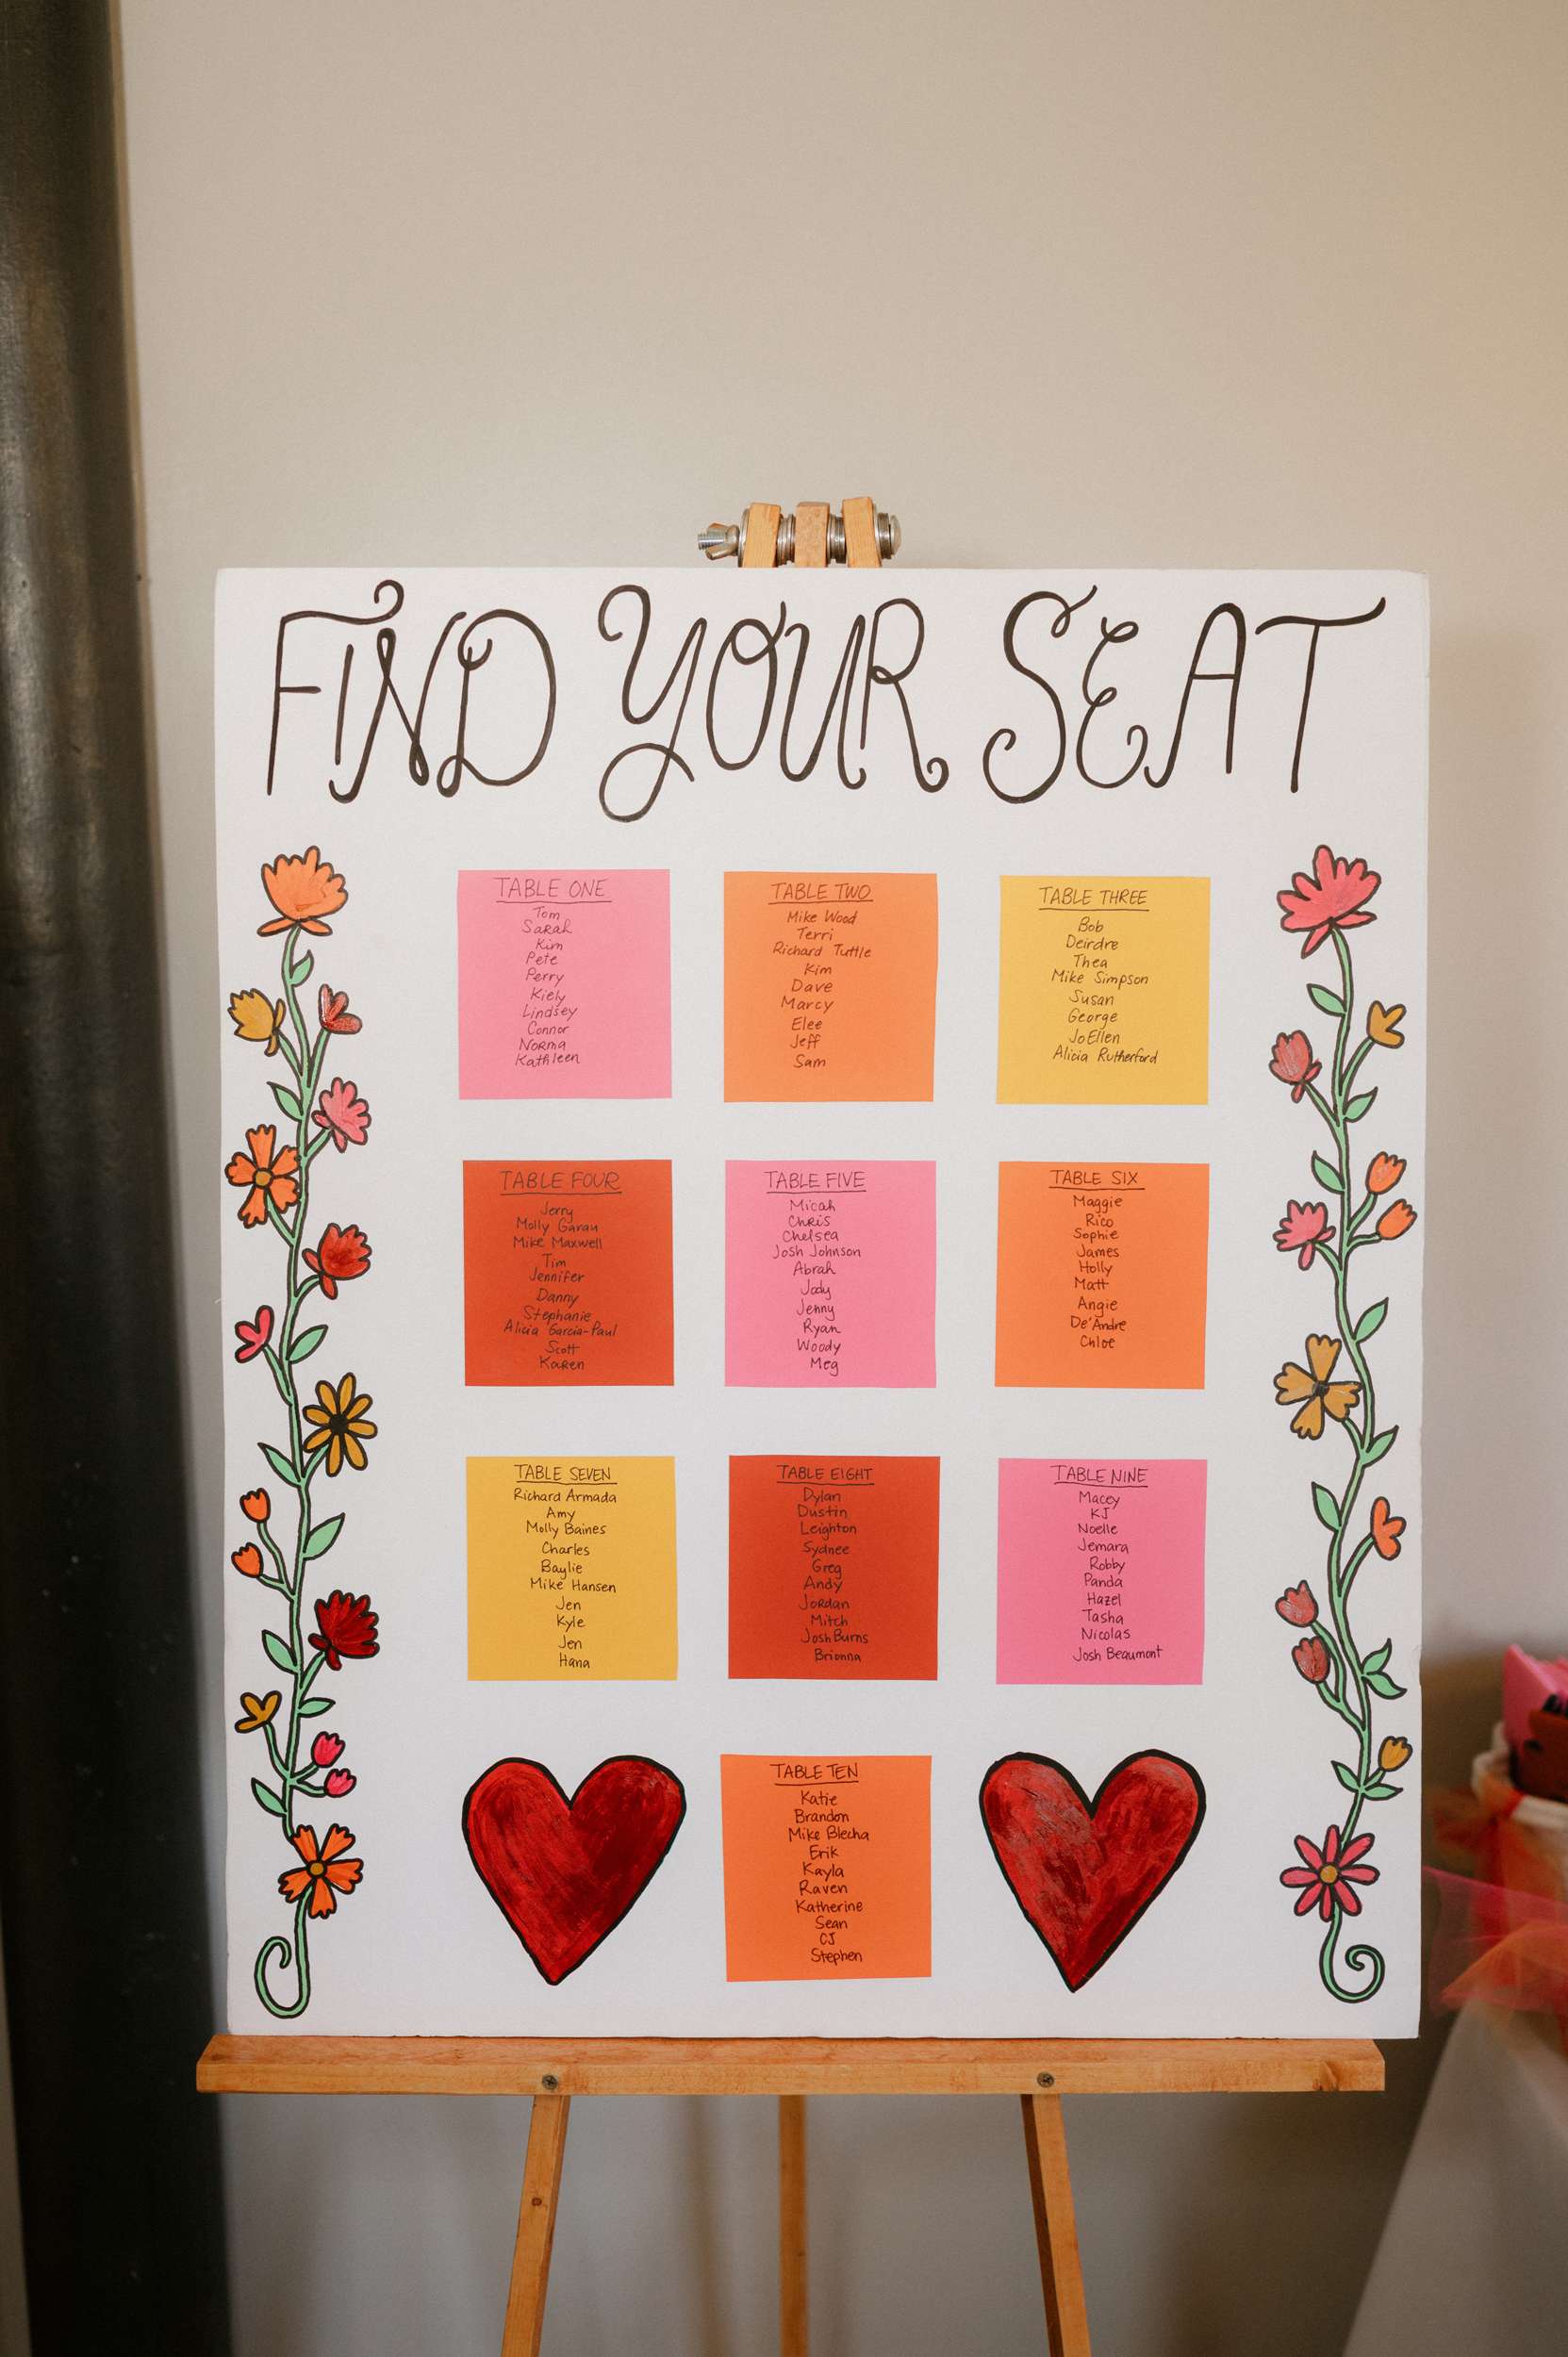 FIND YOUR SEAT
TABLE ONE
Tom
Sarah
Kim
Pete
Perry
Kiely
Lindsey
Connor
Norma
Kathleen
TABLE TWO
Mike Wood
Terri
Richard Tuttle
Kim
Dave
Marcy
Elee
Jeff
Sam
TABLE THREE
Bob
Deirdre
Thea
Mike Simpson
Susan
George
JoEllen
Alicia Rutherford
TABLE FOUR
Jerry
Molly Garau
Mike Maxwell
Tim
Jennifer
Danny
Stephanie
Alicia Garcia-Paul
Scott
Karen
TABLE FIVE
Micah
Chris
Chelsea
Josh Johnson
Abrah
Jody
Jenny
Ryan
Woody
Meg
TABLE SIX
Maggie
Rico
Sophie
James
Holly
Matt
Angie
De'Andre
Chloe
TABLE SEVEN
Richard Armada
Amy
Molly Baines
Charles
Baylie
Mike Hansen
Jen
Kyle
Jen
Hana
TABLE EIGHT
Dylan
Dustin
Leighton
Sydnee
Greg
Andy
Jordan
Mitch
Josh Burns
Brionna
TABLE NINE
Macey
KJ
Noelle
Jemara
Robby
Panda
Hazel
Tasha
Nicolas
Josh Beaumont
TABLE TEN
Katie
Brandon
Mike Blecha
Erik
Kayla
Raven
Katherine
Sean
CJ
Stephen